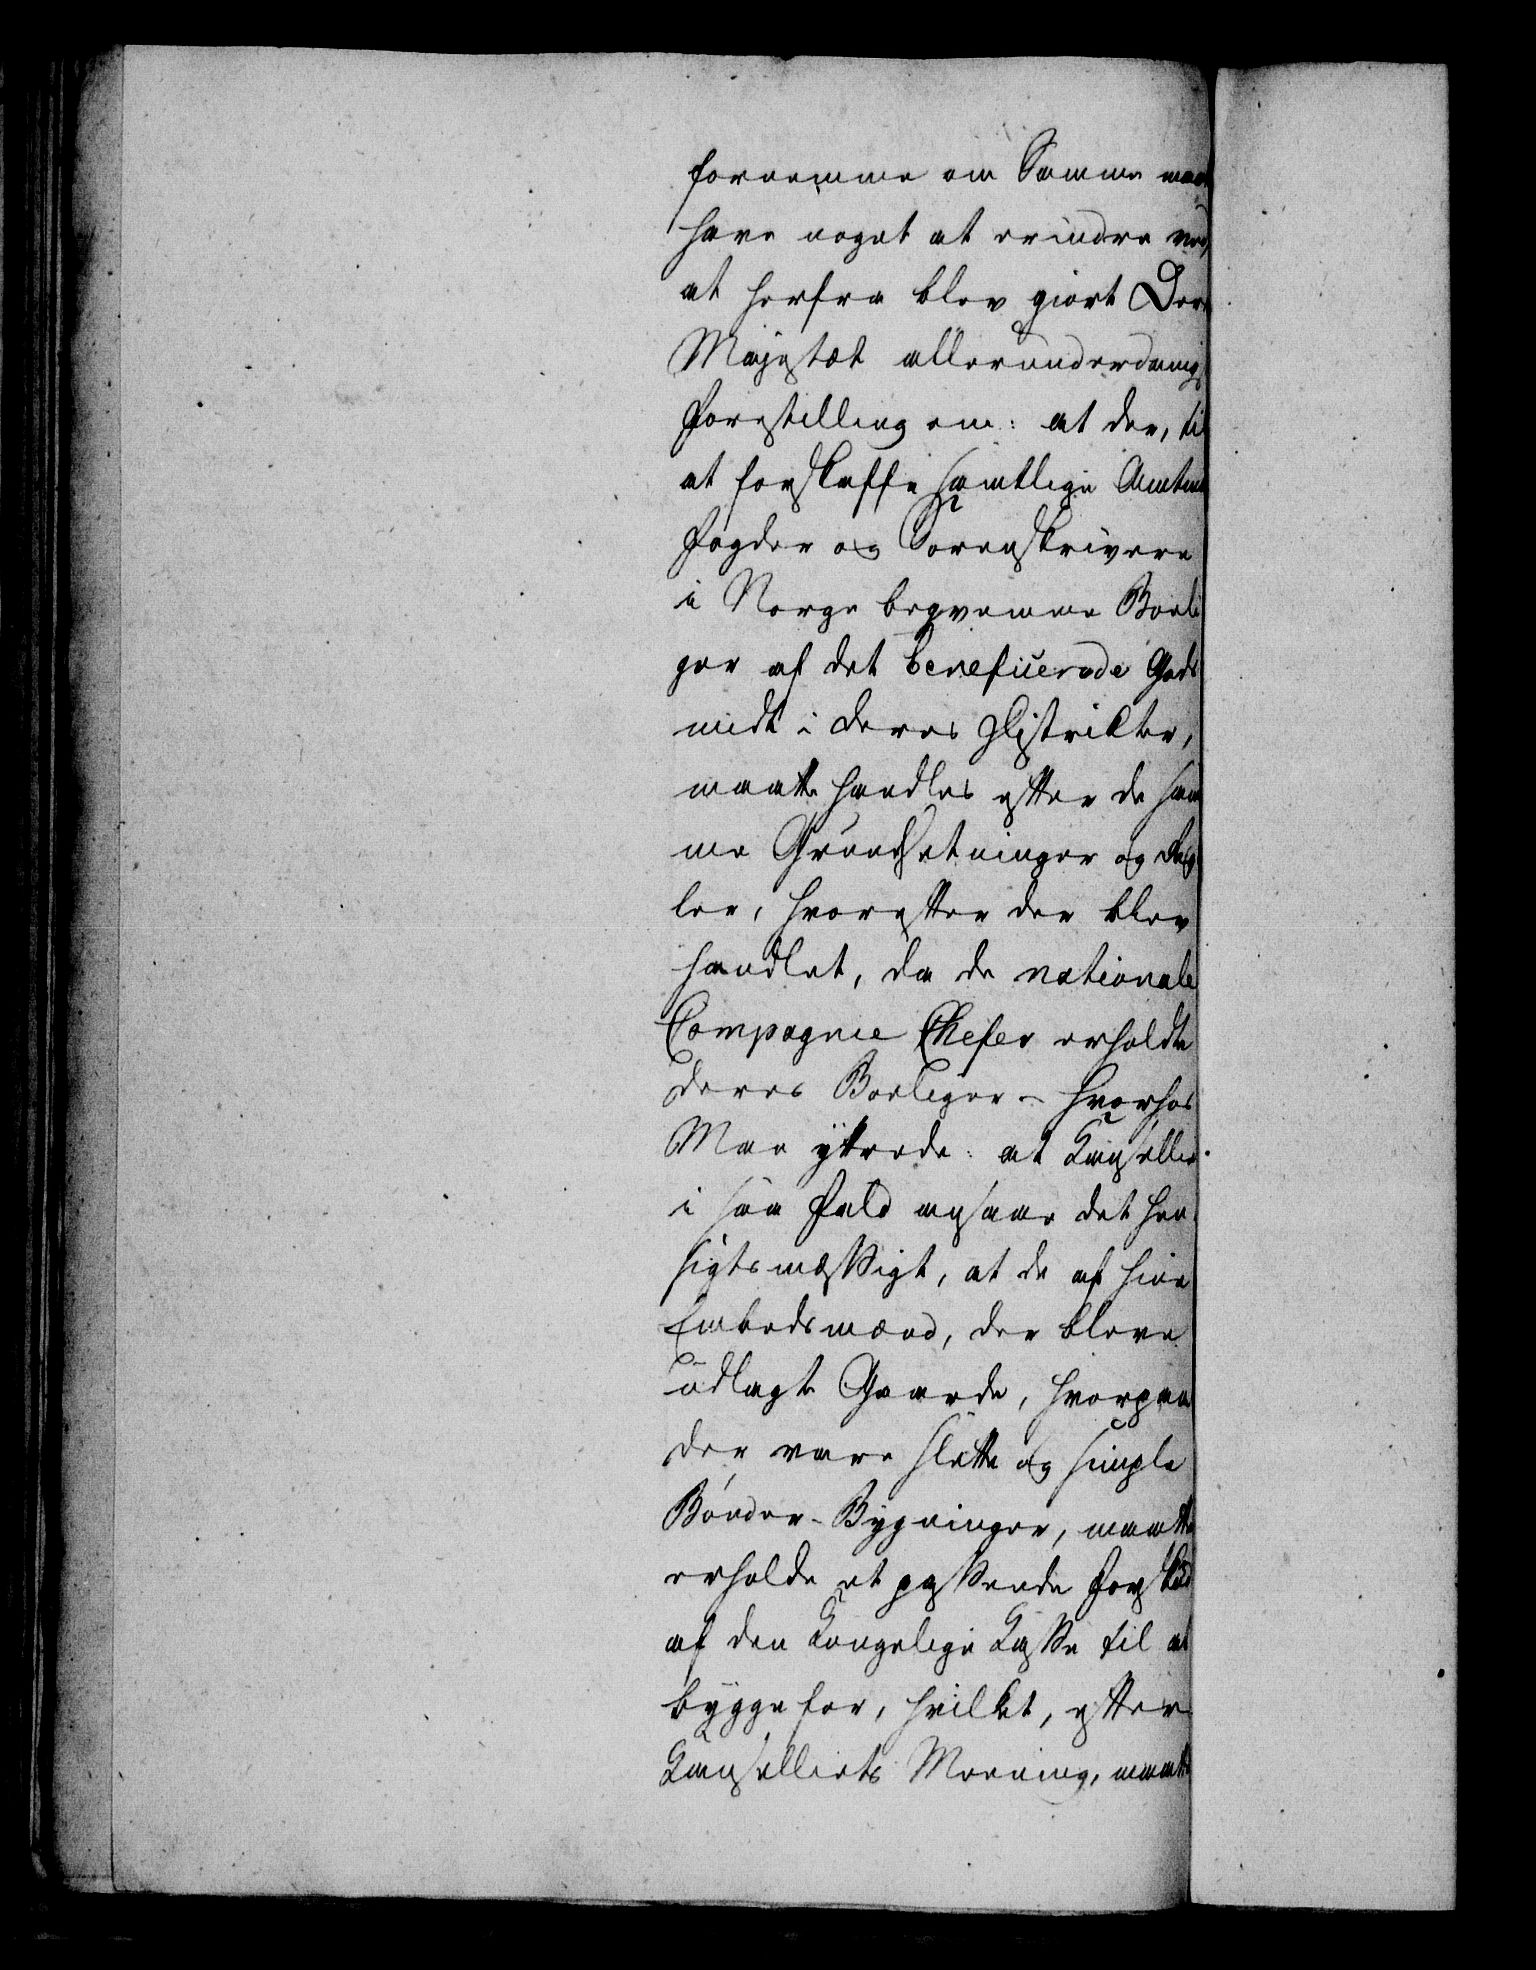 fornemme om Samme maat
have noget at erindre ved,
at herfra blev giort Deres
Majestæt allerunderdanigst
Forestilling om: at der, til
at forskaffe samtlige Amtmænd
Fogder og Sorenskrivere
i Norge beqvemme Boeli
ger af det beneficerede Gods
midt i deres Distrikter,
maatte handles efter de sam
me Grundsætninger og Reg
ler, hvorefter der blev
handlet, da de nationale
Compagnie Chefer erholdte
deres Boeliger - hvorhos
Man yttrede: at Kancelliet
i saa Fald ansaae det hen
sigtsmæssigt, at de af hine
Embedsmænd, der bleve
udlagte Gaarde, hvorpaa
der vare slette og simple
Bønder-Bygninger, maatte
erholde et passende Forskud
af den Kongelige Kasse til at
bygge for, hvilket, efter
Kancelliets Meening, maatte